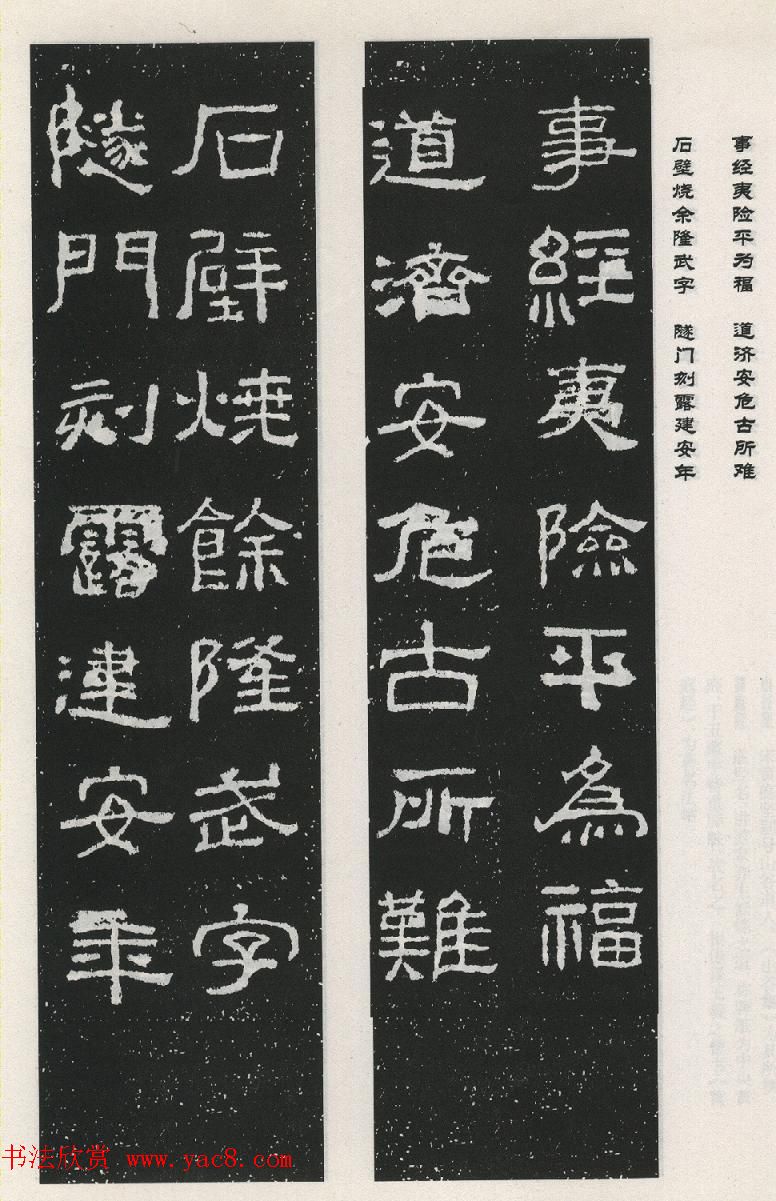 事经夷险平为福　道济安危古所难
石壁烧余隆武字　隧门刻露建安年
事經夷險平為福
道濟安危古所難
石壁燒餘隆武字
隧門刻露建安年
书法欣赏 www.yac8.com